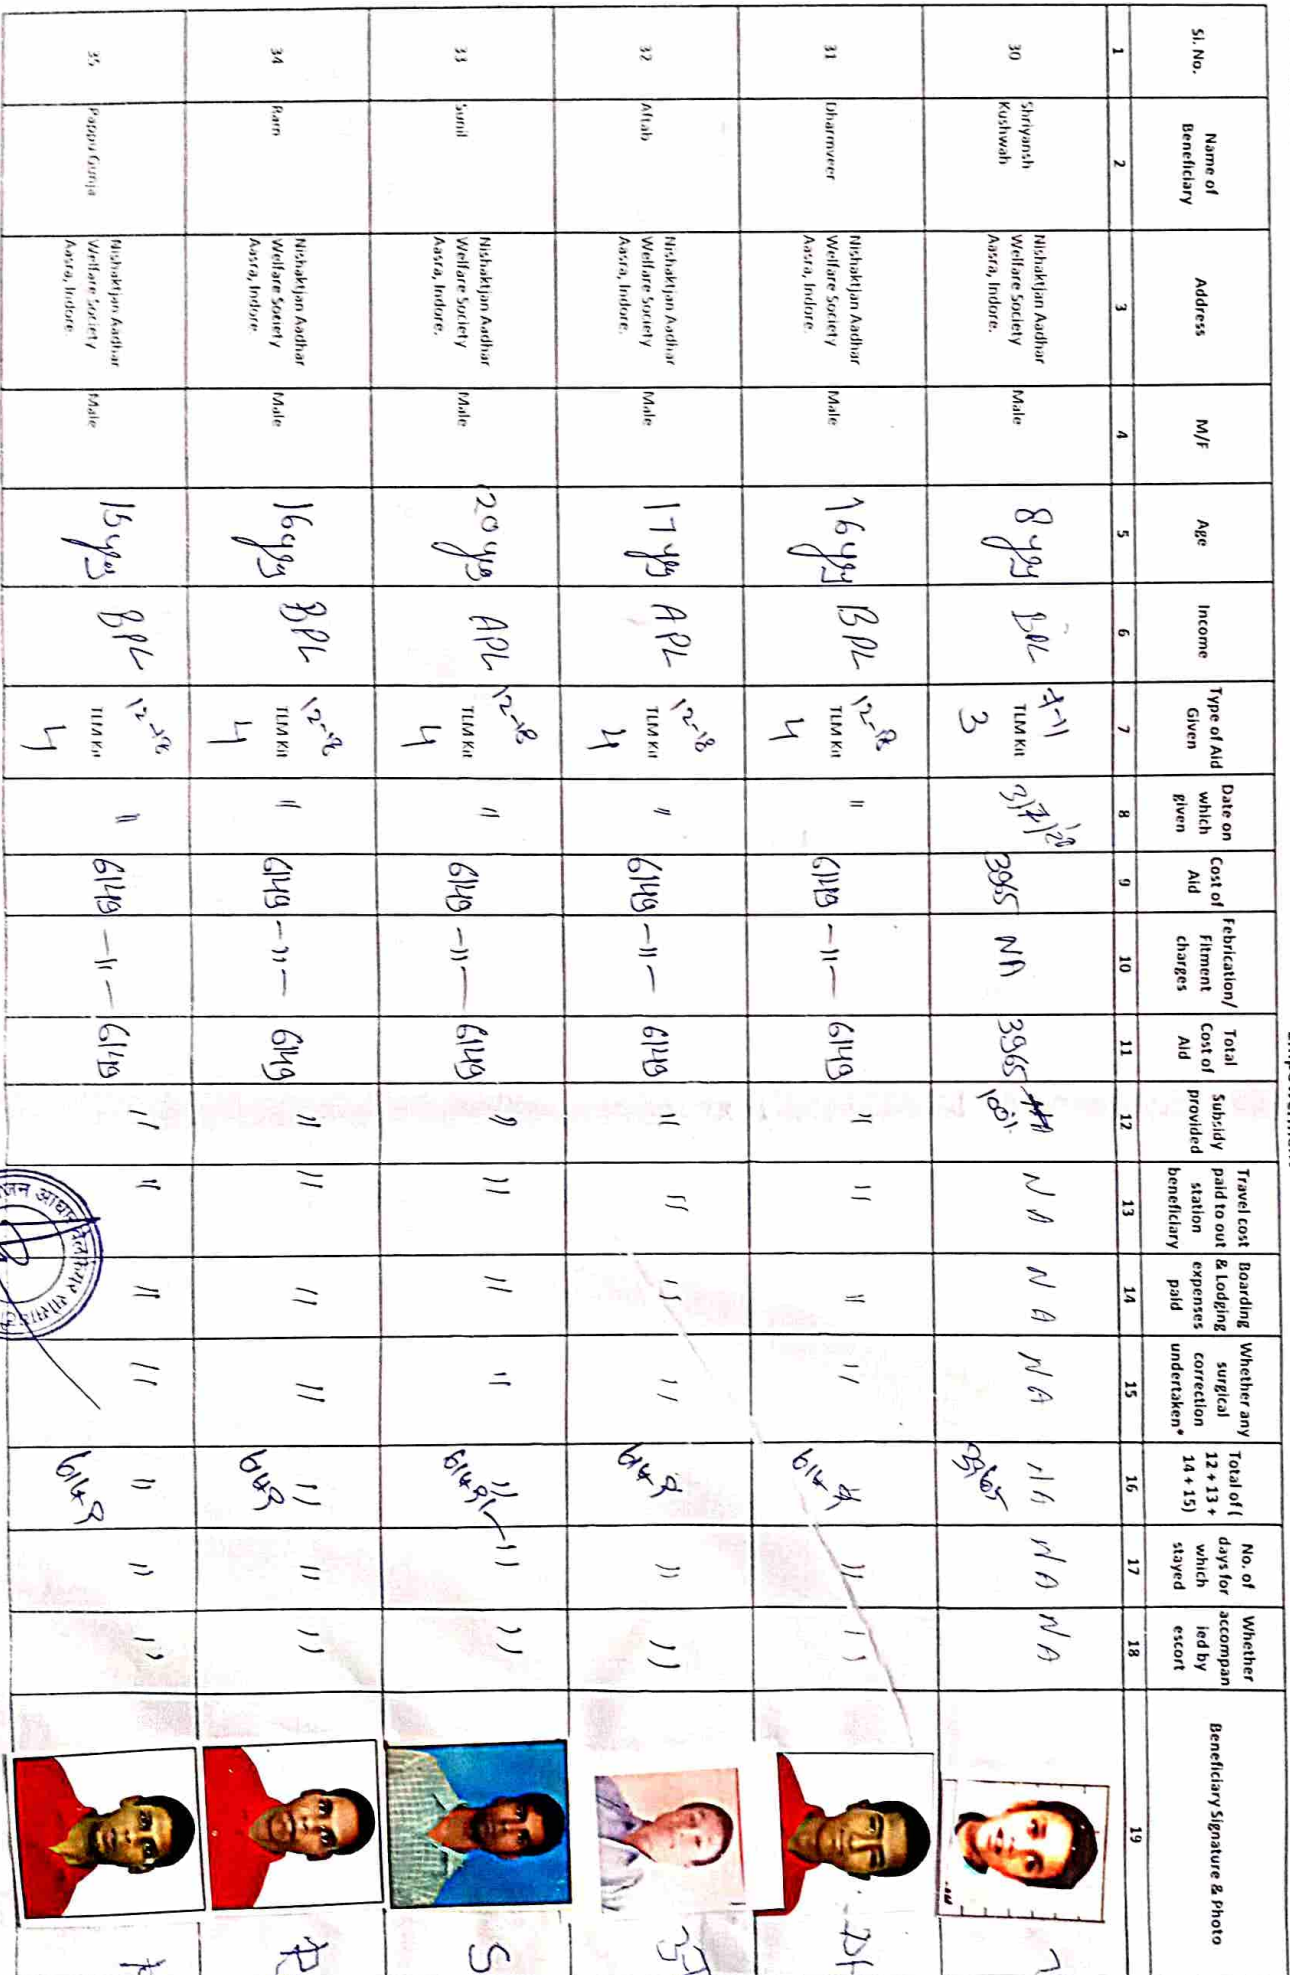 Sl. No. | Name of Beneficiary | Address | M/F | Age | Income | Type of Aid Given | Date on which given | Cost of Aid | Febrication/ Fitment charges | Total Cost of Aid | Subsidy provided | Travel cost paid to out station beneficiary | Boarding & Lodging expenses paid | Whether any surgical correction undertaken* | Total of ( 12 + 13 + 14 + 15) | No. of days for which stayed | Whether accompan ied by escort | Beneficiary Signature & Photo
1 | 2 | 3 | 4 | 5 | 6 | 7 | 8 | 9 | 10 | 11 | 12 | 13 | 14 | 15 | 16 | 17 | 18 | 19
30 | Shriyansh Kushwah | Nishaktjan Aadhar Welfare Society Aasra, Indore. | Male | 8 yrs | BPL | 7-11 TLM Kit 3 | 3/7/20 | 3965 | NA | 3965 | 100% | NA | NA | NA | NA 3965 | NA | NA
31 | Dharmveer | Nishaktjan Aadhar Welfare Society Aasra, Indore. | Male | 16 yrs | BPL | 12-18 TLM Kit 4 | " | 6149 | -"- | 6149 | " | " | " | " | 6149 | " | "
32 | Aftab | Nishaktjan Aadhar Welfare Society Aasra, Indore. | Male | 17 yrs | APL | 12-18 TLM Kit 4 | " | 6149 | -"- | 6149 | " | " | " | " | 6149 | " | "
33 | Sunil | Nishaktjan Aadhar Welfare Society Aasra, Indore. | Male | 20 yrs | APL | 12-18 TLM Kit 4 | " | 6149 | -"- | 6149 | " | " | " | " | " 6149 | " | " | S
34 | Ram | Nishaktjan Aadhar Welfare Society Aasra, Indore. | Male | 16 yrs | BPL | 12-18 TLM Kit 4 | " | 6149 | -"- | 6149 | " | " | " | " | " 6149 | " | " | R
35 | Pappu Gunja | Nishaktjan Aadhar Welfare Society Aasra, Indore. | Male | 15 yrs | BPL | 12-18 TLM Kit 4 | " | 6149 | -"- | 6149 | " | " | " | " | " 6149 | " | "